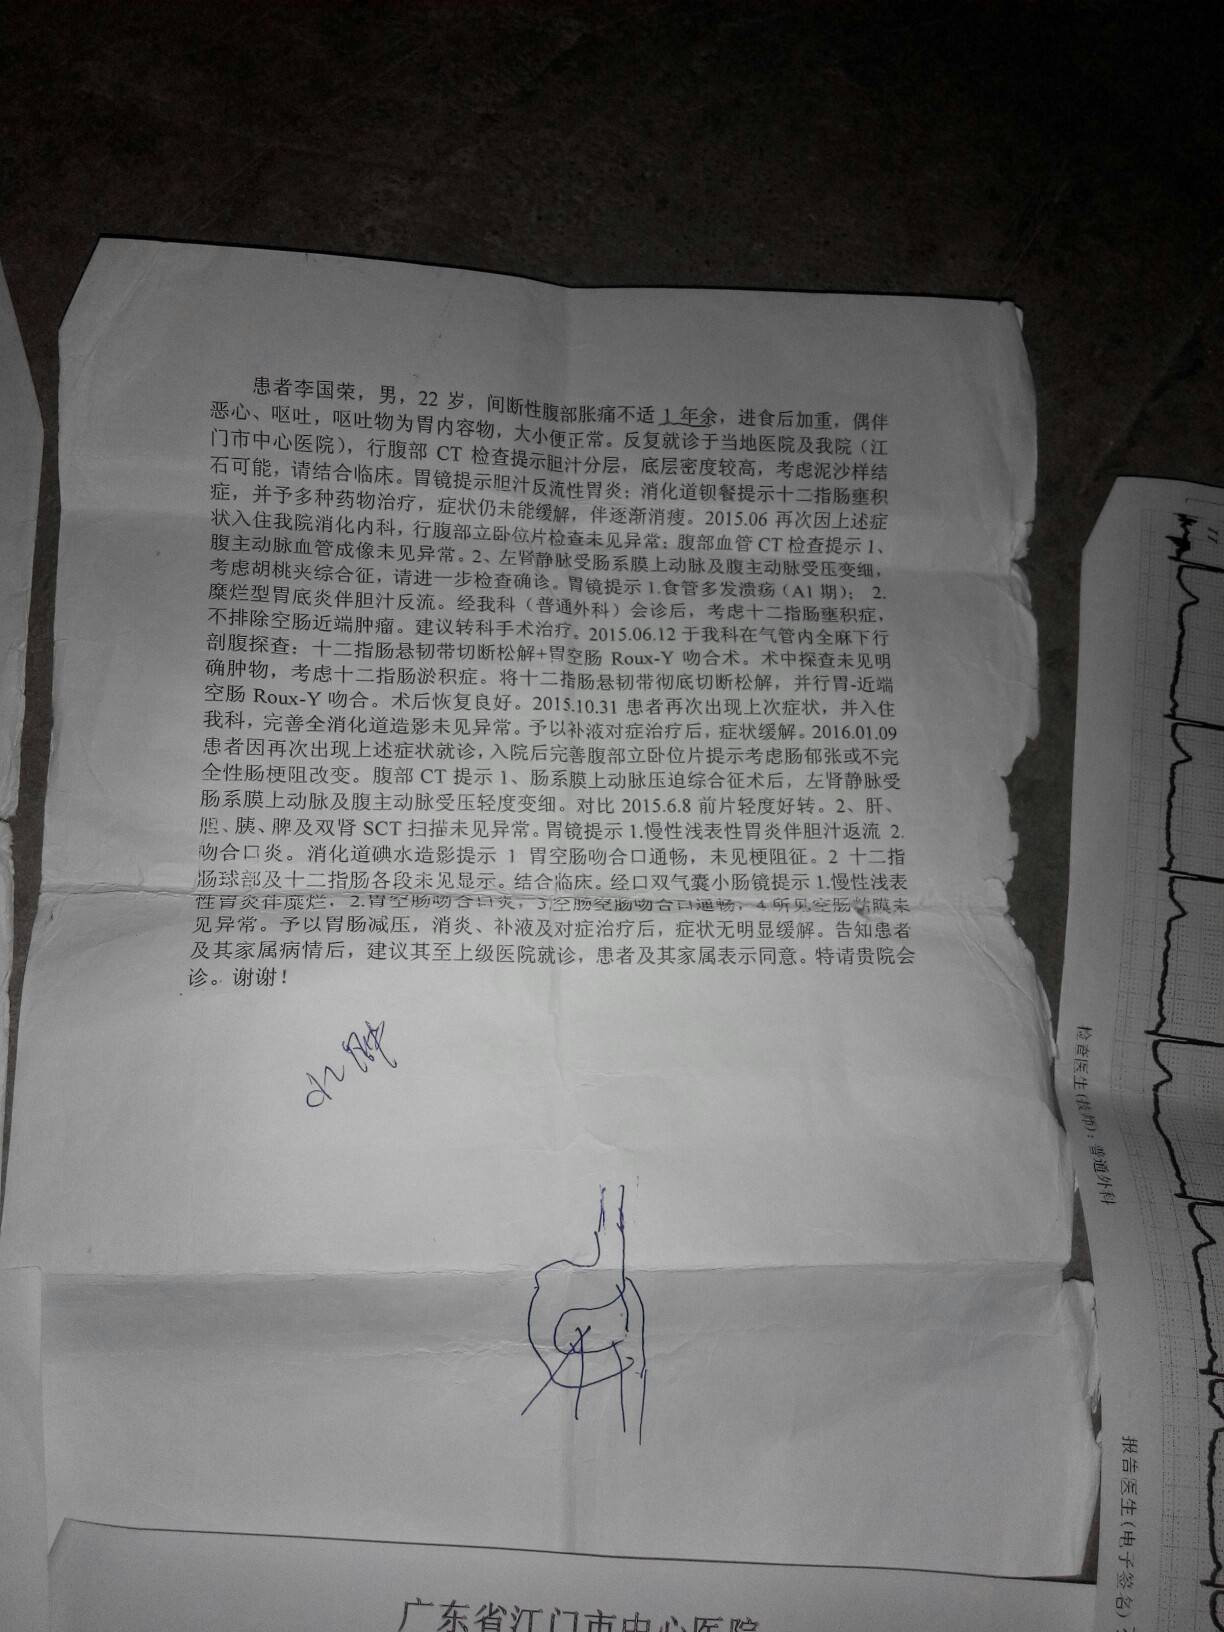 患者李国荣，男，22 岁，间断性腹部胀痛不适 1 年余，进食后加重，偶伴
恶心、呕吐，呕吐物为胃内容物，大小便正常。反复就诊于当地医院及我院（江
门市中心医院），行腹部 CT 检查提示胆汁分层，底层密度较高，考虑泥沙样结
石可能，请结合临床。胃镜提示胆汁反流性胃炎；消化道钡餐提示十二指肠壅积
症，并予多种药物治疗，症状仍未能缓解，伴逐渐消瘦。2015.06 再次因上述症
状入住我院消化内科，行腹部立卧位片检查未见异常；腹部血管 CT 检查提示 1、
腹主动脉血管成像未见异常。2、左肾静脉受肠系膜上动脉及腹主动脉受压变细，
考虑胡桃夹综合征，请进一步检查确诊。胃镜提示 1.食管多发溃疡（A1 期）； 2.
糜烂型胃底炎伴胆汁反流。经我科（普通外科）会诊后，考虑十二指肠壅积症，
不排除空肠近端肿瘤。建议转科手术治疗。2015.06.12 于我科在气管内全麻下行
剖腹探查：十二指肠悬韧带切断松解+胃空肠 Roux-Y 吻合术。术中探查未见明
确肿物，考虑十二指肠淤积症。将十二指肠悬韧带彻底切断松解，并行胃-近端
空肠 Roux-Y 吻合。术后恢复良好。2015.10.31 患者再次出现上次症状，并入住
我科，完善全消化道造影未见异常。予以补液对症治疗后，症状缓解。2016.01.09
患者因再次出现上述症状就诊，入院后完善腹部立卧位片提示考虑肠郁张或不完
全性肠梗阻改变。腹部 CT 提示 1、肠系膜上动脉压迫综合征术后，左肾静脉受
肠系膜上动脉及腹主动脉受压轻度变细。对比 2015.6.8 前片轻度好转。2、肝、
胆、胰、脾及双肾 SCT 扫描未见异常。胃镜提示 1.慢性浅表性胃炎伴胆汁返流 2.
吻合口炎。消化道碘水造影提示 1 胃空肠吻合口通畅，未见梗阻征。2 十二指
肠球部及十二指肠各段未见显示。结合临床。经口双气囊小肠镜提示 1.慢性浅表
性胃炎伴糜烂，2.胃空肠吻合口炎，3.空肠空肠吻合口通畅，4.所见空肠粘膜未
见异常。予以胃肠减压，消炎、补液及对症治疗后，症状无明显缓解。告知患者
及其家属病情后，建议其至上级医院就诊，患者及其家属表示同意。特请贵院会
诊。谢谢！
水肿
检查医生(技师)：普通外科
报告医生(电子签名)
广东省江门市中心医院